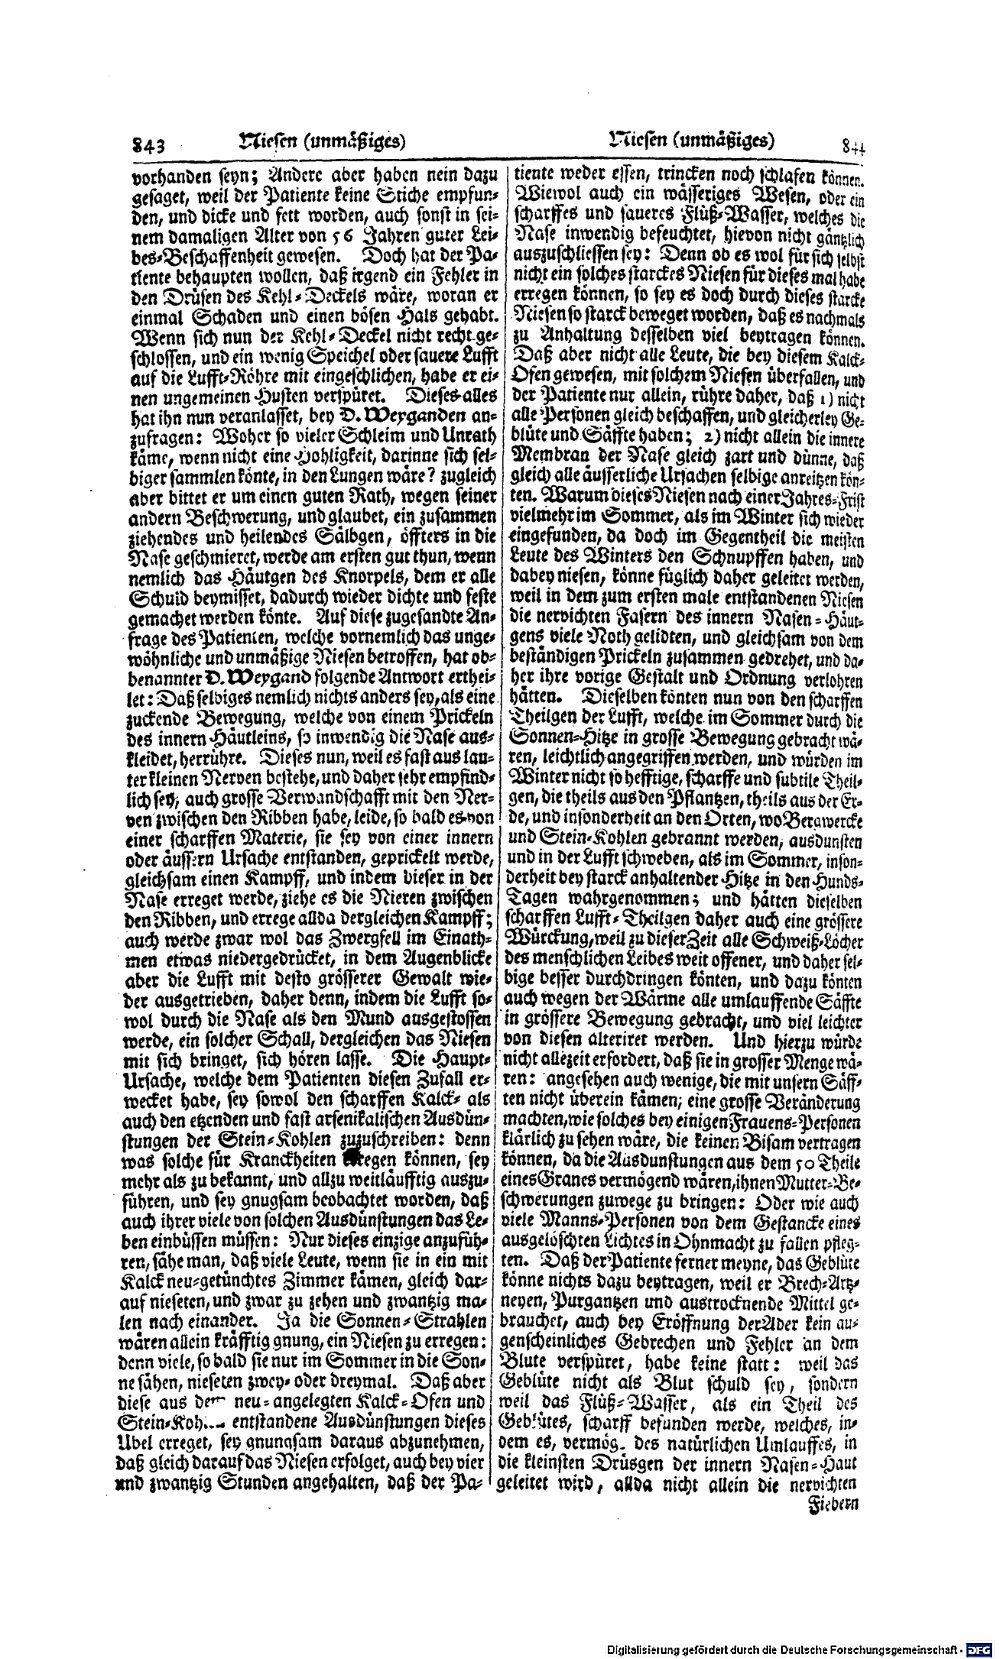 843 Niesen (unmäßiges)
Niesen (unmäßiges) 844
vorhanden seyn; Andere aber haben nein dazu
gesaget, weil der Patiente keine Stiche empfun-
den, und dicke und fett worden, auch sonst in sei-
nem damaligen Alter von 56 Jahren guter Lei-
bes-Beschaffenheit gewesen. Doch hat der Pa-
tiente behaupten wollen, daß irgend ein Fehler in
den Drüsen des Kehl-Deckels wäre, woran er
einmal Schaden und einen bösen Hals gehabt.
Wenn sich nun der Kehl-Deckel nicht recht ge-
schlossen, und ein wenig Speichel oder sauere Lufft
auf die Lufft-Röhre mit eingeschlichen, habe er ei-
nen ungemeinen Husten verspüret. Dieses alles
hat ihn nun veranlasset, bey D. Weyganden an-
zufragen: Woher so vieler Schleim und Unrath
käme, wenn nicht eine Hohligkeit, darinne sich sel-
biger sammlen könte, in den Lungen wäre? zugleich
aber bittet er um einen guten Rath, wegen seiner
andern Beschwerung, und glaubet, ein zusammen
ziehendes und heilendes Sälbgen, öffters in die
Nase geschmieret, werde am ersten gut thun, wenn
nemlich das Häutgen des Knorpels, dem er alle
Schuld beymisset, dadurch wieder dichte und feste
gemachet werden könte. Auf diese zugesandte An-
frage des Patienten, welche vornemlich das unge-
wöhnliche und unmäßige Niesen betroffen, hat ob-
benannter D. Weygand folgende Antwort erthei-
let: Daß selbiges nemlich nichts anders sey, als eine
zuckende Bewegung, welche von einem Prickeln
des innern Häutleins, so inwendig die Nase aus-
kleidet, herrühre. Dieses nun, weil es fast aus lau-
ter kleinen Nerven bestehe, und daher sehr empfind-
lich sey, auch grosse Verwandschafft mit den Ner-
ven zwischen den Ribben habe, leide, so bald es von
einer scharffen Materie, sie sey von einer innern
oder äussern Ursache entstanden, geprickelt werde,
gleichsam einen Kampff, und indem dieser in der
Nase erreget werde, ziehe es die Nieren zwischen
den Ribben, und errege allda dergleichen Kampff;
auch werde zwar wol das Zwergfell im Einath-
men etwas niedergedrücket, in dem Augenblicke
aber die Lufft mit desto grösserer Gewalt wie-
der ausgetrieben, daher denn, indem die Lufft so-
wol durch die Nase als den Mund ausgestossen
werde, ein solcher Schall, dergleichen das Niesen
mit sich bringet, sich hören lasse. Die Haupt-
Ursache, welche dem Patienten diesen Zufall er-
wecket habe, sey sowol den scharffen Kalck- als
auch den etzenden und fast arsenikalischen Ausdün-
stungen der Stein-Kohlen zuzuschreiben: denn
was solche für Kranckheiten erregen können, sey
mehr als zu bekannt, und allzu weitläufftig auszu-
führen, und sey gnugsam beobachtet worden, daß
auch ihrer viele von solchen Ausdünstungen das Le-
ben einbüssen müssen: Nur dieses einzige anzufüh-
ren, sähe man, daß viele Leute, wenn sie in ein mit
Kalck neu-getünchtes Zimmer kämen, gleich dar-
auf nieseten, und zwar zu zehen und zwantzig ma-
len nach einander. Ja die Sonnen-Strahlen
wären allein kräfftig gnung, ein Niesen zu erregen:
denn viele, so bald sie nur im Sommer in die Son-
ne sähen, nieseten zwey- oder dreymal. Daß aber
diese aus neu-angelegten Kalck-Ofen und
entstandene Ausdünstungen dieses
Ubel erreget, sey gnungsam daraus abzunehmen,
daß gleich darauf das Niesen erfolget, auch bey vier
und zwantzig Stunden angehalten, daß der Pa-
tiente weder essen, trincken noch schlafen können.
Wiewol auch ein wässeriges Wesen, oder ein
scharffes und saueres Flüß-Wasser, welches die
Nase inwendig befeuchtet, hievon nicht gäntzlich
auszuschliessen sey: Denn ob es wol für sich selbst
nicht ein solches starckes Niesen für dieses mal habe
erregen können, so sey es doch durch dieses starcke
Niesen so starck beweget worden, daß es nachmals
zu Anhaltung desselben viel beytragen können.
Daß aber nicht alle Leute, die bey diesem Kalck-
Ofen gewesen, mit solchem Niesen überfallen, und
der Patiente nur allein, rühre daher, daß 1) nicht
alle Personen gleich beschaffen, und gleicherley Ge-
blüte und Säffte haben; 2) nicht allein die innere
Membran der Nase gleich zart und dünne, daß
gleich alle äusserliche Ursachen selbige anreitzen kön-
ten. Warum dieses Niesen nach einer Jahres-Frist
vielmehr im Sommer, als im Winter sich wieder
eingefunden, da doch im Gegentheil die meisten
Leute des Winters den Schnupffen haben, und
dabey niesen, könne füglich daher geleitet werden,
weil in dem zum ersten male entstandenen Niesen
die nervichten Fasern des innern Nasen-Häut-
gens viele Noth gelidten, und gleichsam von dem
beständigen Prickeln zusammen gedrehet, und da-
her ihre vorige Gestalt und Ordnung verlohren
hätten. Dieselben könten nun von den scharffen
Theilgen der Lufft, welche im Sommer durch die
Sonnen-Hitze in grosse Bewegung gebracht wä-
ren, leichtlich angegriffen werden, und würden im
Winter nicht so hefftige, scharffe und subtile Theil-
gen, die theils aus den Pflantzen, theils aus der Er-
de, und insonderheit an den Orten, wo Bergwercke
und Stein-Kohlen gebrannt werden, ausdunsten
und in der Lufft schweben, als im Sommer, inson-
derheit bey starck anhaltender Hitze in den Hunds-
Tagen wahrgenommen; und hätten dieselben
scharffen Lufft-Theilgen daher auch eine grössere
Würckung, weil zu dieser Zeit alle Schweiß-Löcher
des menschlichen Leibes weit offener, und daher sel-
bige besser durchdringen könten, und dazu könten
auch wegen der Wärme alle umlauffende Säffte
in grössere Bewegung gebracht, und viel leichter
von diesen alteriret werden. Und hierzu würde
nicht allezeit erfordert, daß sie in grosser Menge wä-
ren: angesehen auch wenige, die mit unsern Säff-
ten nicht überein kämen, eine grosse Veränderung
machten, wie solches bey einigen Frauens-Personen
klärlich zu sehen wäre, die keinen Bisam vertragen
können, da die Ausdunstungen aus dem 50 Theile
eines Granes vermögend wären, ihnen Mutter-Be-
schwerungen zuwege zu bringen: Oder wie auch
viele Manns-Personen von dem Gestancke eines
ausgelöschten Lichtes in Ohnmacht zu fallen pfleg-
ten. Daß der Patiente ferner meyne, das Geblüte
könne nichts dazu beytragen, weil er Brech-Artz-
neyen, Purgantzen und austrocknende Mittel ge-
brauchet, auch bey Eröffnung der Ader kein au-
genscheinliches Gebrechen und Fehler an dem
Blute verspüret, habe keine statt: weil das
Geblüte nicht als Blut schuld sey, sondern
weil das Flüß-Wasser, als ein Theil des
Geblütes, scharff befunden werde, welches, in-
dem es, vermög. des natürlichen Umlauffes, in
die kleinsten Drüsgen der innern Nasen-Haut
geleitet wird, allda nicht allein die nervichten
Fiebern
Digitalisierung gefördert durch die Deutsche Forschungsgemeinschaft - DFG